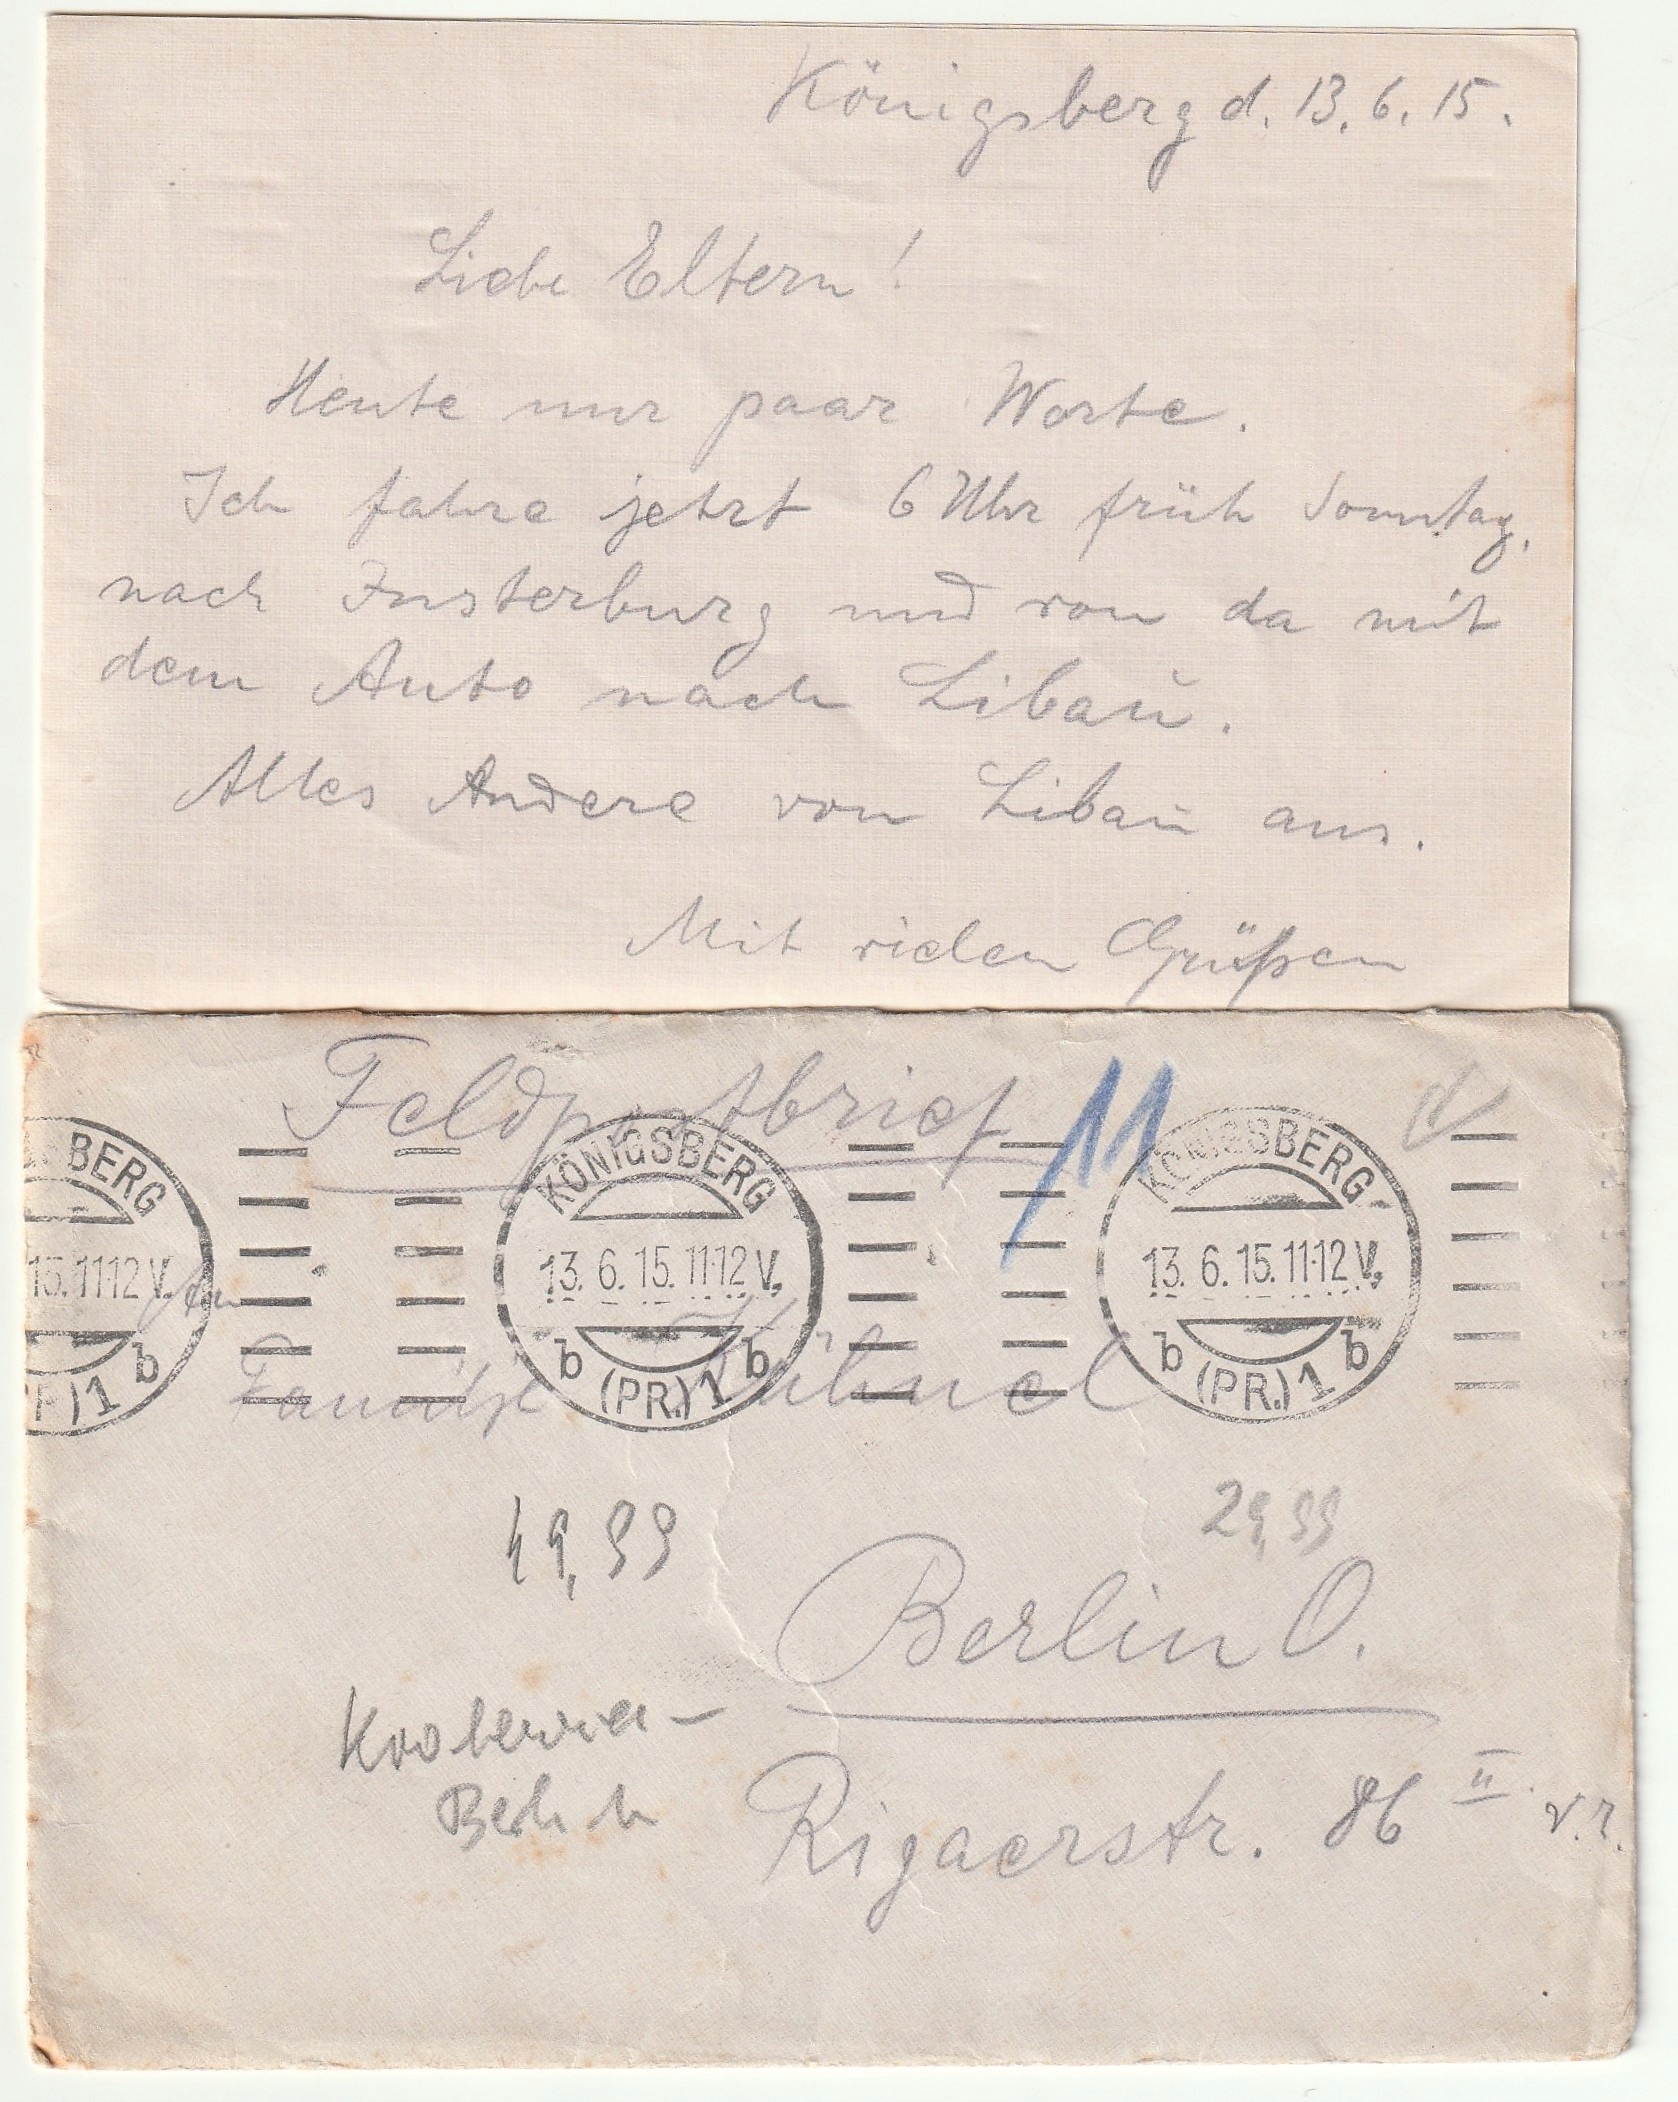 Königsberg d. 13. 6. 15.
Liebe Eltern!
Heute nur paar Worte.
Ich fahre jetzt 6 Uhr früh Sonntag,
nach Insterburg und von da mit
dem Auto nach Libaŭ.
Alles Andere von Libaū aus.
Mit vielen Grüßen
Feldpostbrief 11
SBERG
15.11-12 V.
1 b
KÖNIGSBERG
13. 6. 15. 11-12 V.
b (PR.) 1 b
KÖNIGSBERG
13. 6. 15. 11-12 V.
b (PR.) 1 b
An
Familie Kühnel
49,99
29,99
Berlin O.
Berlin
Rigaerstr. 86 II v. r.